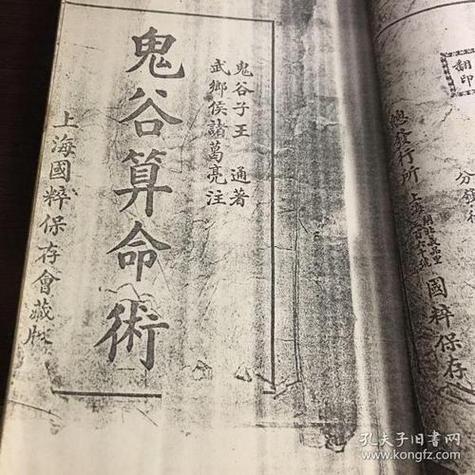 翻印
分鎮
總發行所
國粹保存
鬼谷子王 通著
武鄉侯諸葛亮注
鬼谷算命術
上海國粹保存會藏版
孔夫子旧书网
www.kongfz.com